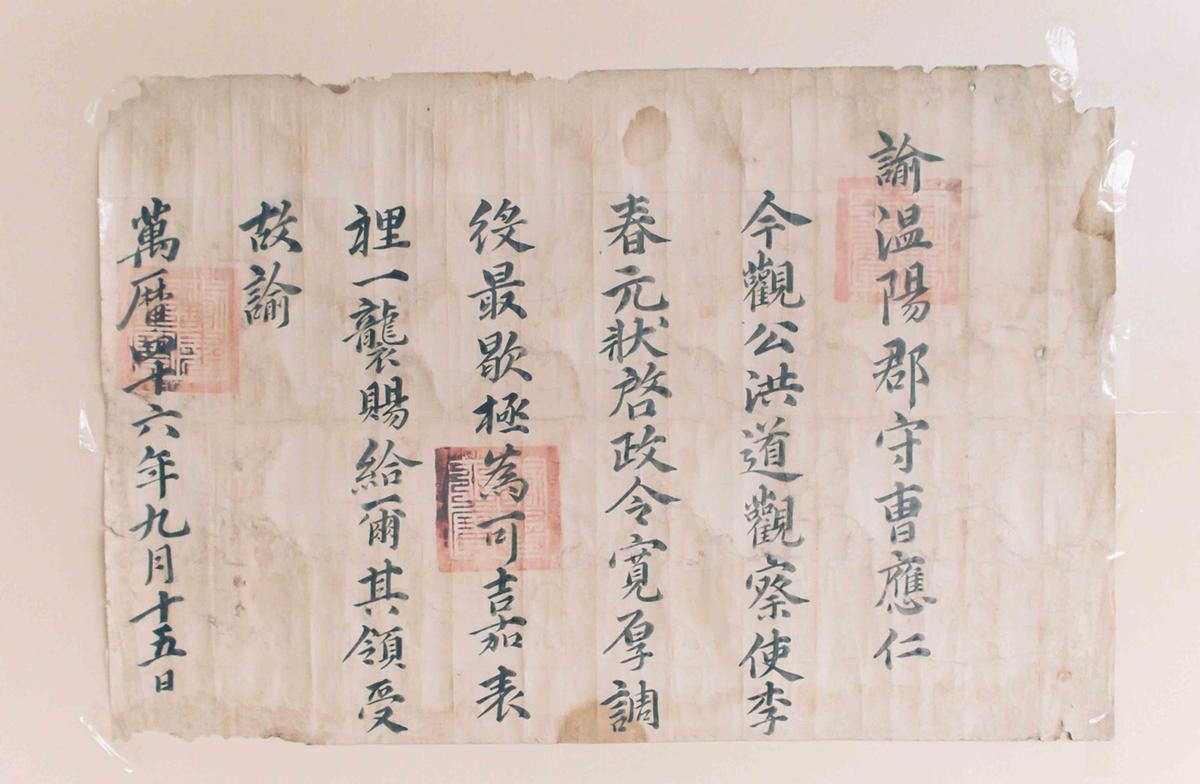 諭温陽郡守曺應仁
今觀公洪道觀察使李
春元狀啓政令寬厚調
役最歇極為可嘉表
裡一襲賜給爾其領受
故諭
萬曆四十六年九月十五日